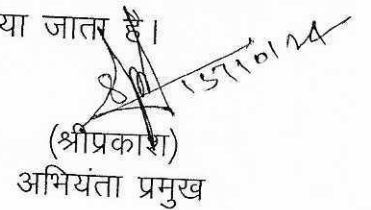 या जाता है।
15/10/24
(श्रीप्रकाश)
अभियंता प्रमुख